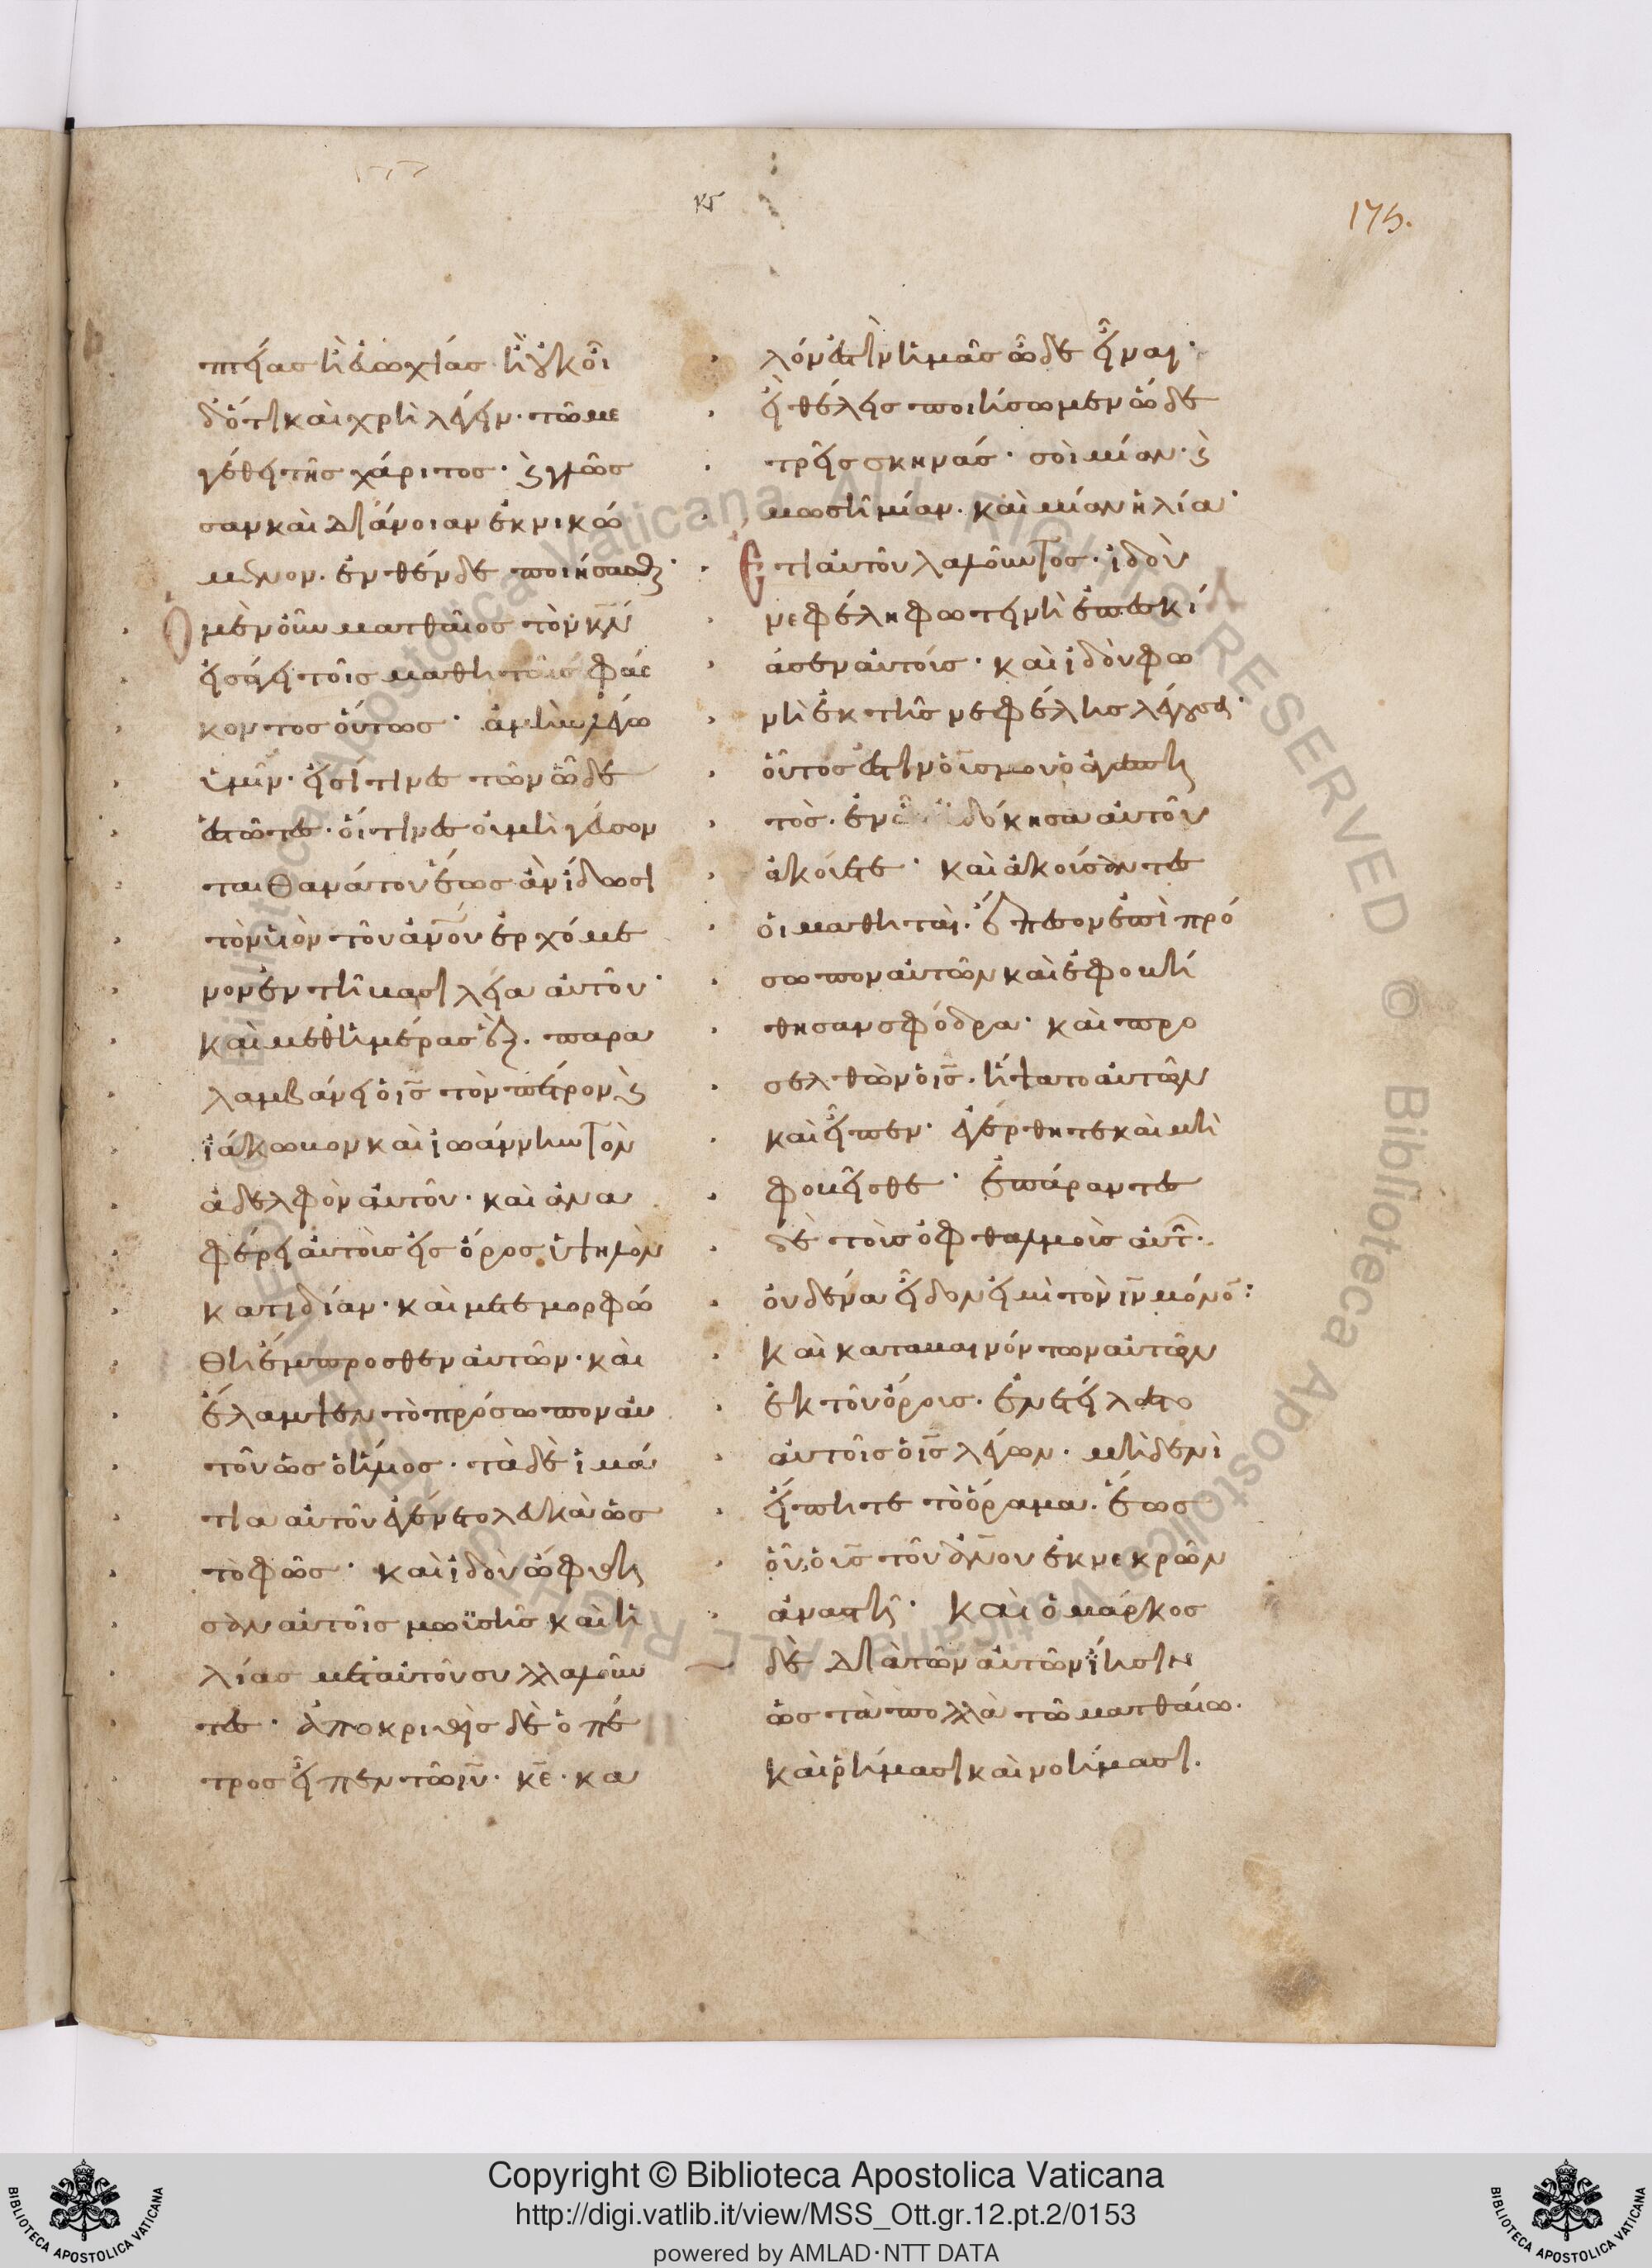 κς
175.
πείας ἢ εὐωχίας ἢ ὄγκοι
διότι καὶ χρὴ λέγειν· τῶ με
γέθει τῆς χάριτος· καὶ γλῶσ
σαν καὶ διάνοιαν ἐκνικώ
μενον. ἐνθένδε ποιήσασθαι·
Ὁ μὲν οὖν ματθαῖος τὸν κν
εἰσάγει τοῖς μαθηταῖς φάς
κοντος οὕτως· ἀμὴν λέγω
ὑμῖν· εἰσί τινες τῶν ὧδε
ἑστῶτες· οἵτινες οὐ μὴ γεύσον
ται θανάτου ἕως ἂν ἴδωσι
τὸν υἱὸν τοῦ ανου ἐρχόμε
νον ἐν τῆ βασιλεία αὐτοῦ·
καὶ μεθ ἡμέρας ἓξ. παρα
λαμβάνει ὁ ις τὸν πέτρον καὶ
ἰάκωβον καὶ ἰωάννην τὸν
ἀδελφὸν αὐτοῦ· καὶ ἀνα
φέρει αὐτοὺς εἰς ὄρος ὑψηλὸν
κατιδίαν· καὶ μετεμορφώ
θη ἔμπροσθεν αὐτῶν· καὶ
ἔλαμψεν τὸ πρόσωπον αὐ
τοῦ ὡς ὁ ἥλιος· τὰ δὲ ἱμά
τια αὐτοῦ ἐγένετο λευκὰ ὡς
τὸ φῶς· καὶ ἰδοὺ ὤφθη
σαν αὐτοῖς μωϋσῆς καὶ ἡ
λίας μετ αὐτοῦ συλλαλοῦν
τες· ἀποκριθεὶς δὲ ὁ πέ
τρος εἶπεν τῶ ιυ· κε· κα
λόν ἐστιν ἡμᾶς ὧδε εἶναι·
εἰ θέλεις ποιήσωμεν ὧδε
τρεῖς σκηνάς· σοὶ μίαν· καὶ
μωσῆ μίαν. καὶ μίαν ηλία·
Ετι αὐτοῦ λαλοῦντος· ἰδοὺ
νεφέλη φωτεινὴ ἐπεσκί
ασεν αὐτοῖς· καὶ ἰδοὺ φω
νὴ ἐκ τῆς νεφέλης λέγουσα·
οὗτος ἐστιν ὁ υς μου ὁ ἀγαπη
τὸς· ἐν ὧ ηὐδόκησα αὐτοῦ
ἀκούετε· καὶ ἀκούσαντες
οἱ μαθηταὶ· ἔπεσον ἐπὶ πρό
σωπον αὐτῶν καὶ ἐφοβή
θησαν σφόδρα· καὶ προ
σελθὼν ὁ ις· ἥψατο αὐτῶν
καὶ εἶπεν· ἐγέρθητε καὶ μὴ
φοβεῖσθε· ἐπάραντες
δὲ τοὺς ὀφθαλμοὺς αὐτ·
οὐδένα εἶδον εἰ μὴ τὸν ιν μόνο:
καὶ καταβαινόντων αὐτῶν
ἐκ τοῦ ὄρους· ἐνετείλατο
αὐτοῖς ὁ ις λέγων· μηδενὶ
εἴπητε τὸ ὅραμα. ἕως
οὗ, ὁ υς τοῦ ανου ἐκ νεκρῶν
ἀναστῆ· καὶ ὁ μάρκος
δὲ διὰ τῶν αὐτῶν ἵησιν
ὡς τὰ πολλὰ τῶ ματθαίω·
καὶ ῥήμασι καὶ νοήμασι.
Copyright © Biblioteca Apostolica Vaticana
http://digi.vatlib.it/view/MSS_Ott.gr.12.pt.2/0153
powered by AMLAD·NTT DATA
BIBLIOTECA APOSTOLICA VATICANA
BIBLIOTECA APOSTOLICA VATICANA